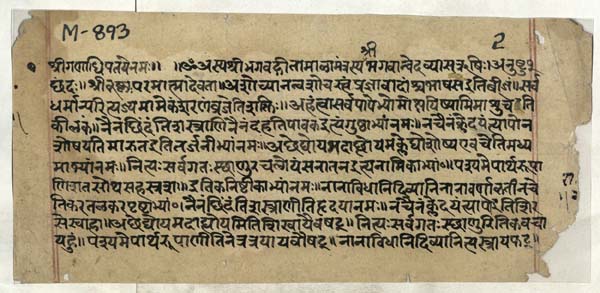 M-893
2
श्री
श्रीगणाधिपतयेनमः॥ ॥ॐ अस्यश्रीभगवद्गीतामालामंत्रस्य भगवान्वेदव्यासऋषिः अनुष्टुप्
छंदः॥ श्रीकृष्णपरमात्मादेवता॥ अशोच्यानन्वशोचस्त्वंप्रज्ञावादांश्चभाषसइतिबीजं॥ सर्व
धर्मान्परित्यज्यमामेकंशरणंव्रजेतिशक्तिः॥ अहंत्वासर्वपापेभ्योमोक्षयिष्यामिमाशुचइति
कीलकं॥ नैनंछिंदंतिशस्त्राणिनैनंदहतिपावकइत्यंगुष्ठाभ्यांनमः॥ नचैनंक्लेदयंत्यापोन
शोषयतिमारुतइतितर्जनीभ्यांनमः॥ अछेद्योयमदाह्योयमक्लेद्योशोष्यएवचेतिमध्य
माभ्यांनमः॥ नित्यःसर्वगतःस्थाणुरचलोयंसनातनइत्यनामिकाभ्यांन॥ पश्यमेपार्थरूपा
णिशतसोथसहस्त्रशः॥ इतिकनिष्टीकाभ्यांनमः॥ नानाविधानिदिव्यानिनानावर्णाकृतीनिचे
तिकरतलकरपृष्ठाभ्यां॰ नैनंछिंदंतिशस्त्राणीतिहृदयायनमः॥ नचैनंक्लेदयंत्यापइतिशिर
सेस्वाहा॥ अछेद्योयमदाह्योयमितिशिखायैवषट्॥ नित्यःसर्वगतःस्थाणुरितिकवचा
यहुं॥ पश्यमेपार्थरूपाणीतिनेत्रत्रयायवौषट्॥ नानाविधानिदिव्यानित्यस्त्रायफट्॥